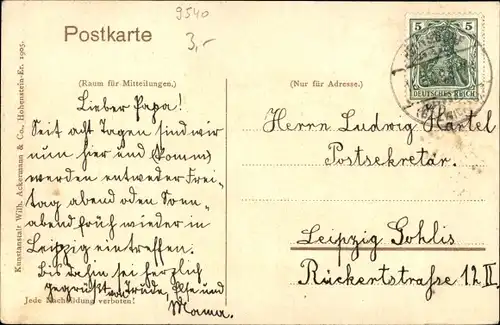 9540
3,-
Postkarte
(Raum für Mitteilungen.)
Lieber Papa!
Seit acht Tagen sind wir
nun hier und
werden entweder Frei-
tag abend oder Sonn-
abend früh wieder in
Leipzig eintreffen.
Bis dahin sei herzlich
gegrüßt von Trude, Else und
Mama.
Jede Nachbildung verboten!
Kunstanstalt Wilh. Ackermann & Co., Hohenstein-Er. 1905.
5 5
DEUTSCHES REICH
(Nur für Adresse.)
Herrn Ludwig Härtel
Postsekretär.
Leipzig Gohlis
Rückertstrasse 12 II.